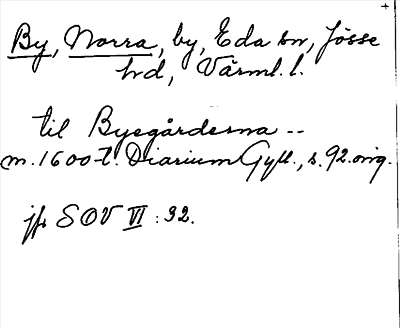 By, Norra, by, Eda sn, Jösse
hd, Värml. l.
til Byegårderna --
m. 1600-t. Diarium Gyll., s. 92. orig.
jfr SOV VI : 32.